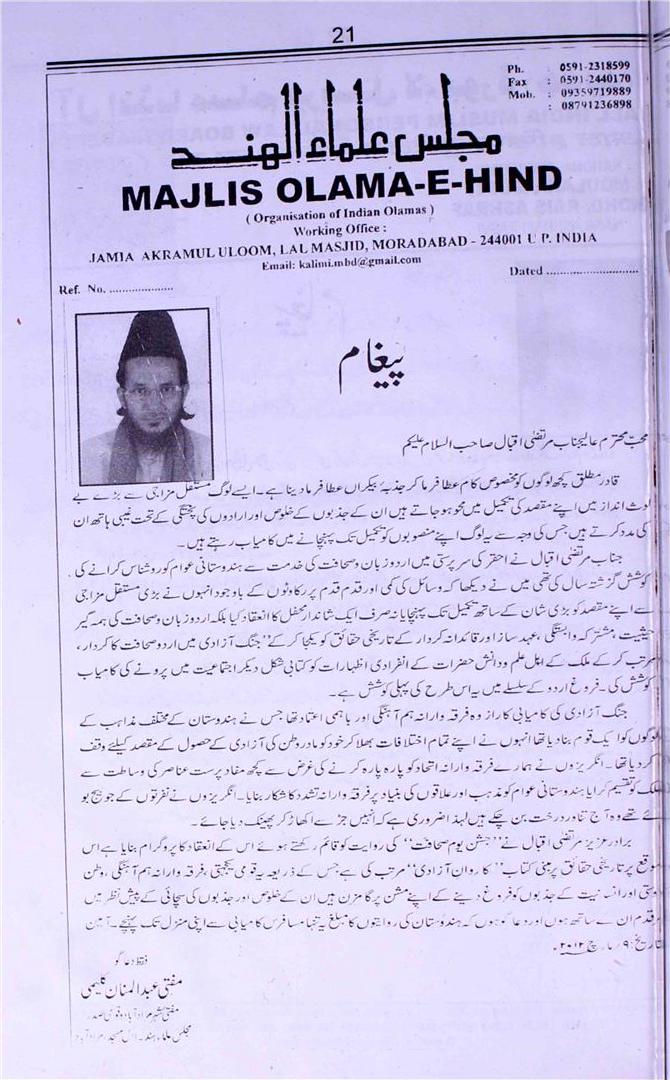 21
Ph. : 0591-2318599
Fax : 0591-2440170
Mob. : 09359719889
: 08791236898
مجلس علماء الهند
MAJLIS OLAMA-E-HIND
( Organisation of Indian Olamas )
Working Office :
JAMIA AKRAMUL ULOOM, LAL MASJID, MORADABAD - 244001 U P. INDIA
Email: kalimi.mbd@gmail.com
Ref. No. ....................
Dated ...........................
پیغام
محب محترم عالیجناب مرتضیٰ اقبال صاحب السلام علیکم
قادر مطلق کچھ لوگوں کو مخصوص کام عطا فرما کر جذبہ بیکراں عطا فرما دیتا ہے۔ ایسے لوگ مستقل مزاجی سے بڑے بے
لوث انداز میں اپنے مقصد کی تکمیل میں محو ہو جاتے ہیں ان کے جذبوں کے خلوص اور ارادوں کی پختگی کے تحت غیبی ہاتھ ان
کی مدد کرتے ہیں، جس کی وجہ سے یہ لوگ اپنے منصوبوں کو تکمیل تک پہنچانے میں کامیاب رہتے ہیں۔
جناب مرتضیٰ اقبال نے احقر کی سرپرستی میں اردو زبان و صحافت کی خدمت سے ہندوستانی عوام کو روشناس کرانے کی
کوشش گزشتہ سال کی تھی میں نے دیکھا کہ وسائل کی کمی اور قدم قدم پر رکاوٹوں کے باوجود انہوں نے بڑی مستقل مزاجی
سے اپنے مقصد کو بڑی شان کے ساتھ تکمیل تک پہنچایا نہ صرف ایک شاندار محفل کا انعقاد کیا بلکہ اردو زبان و صحافت کی ہمہ گیر
حیثیت، مشترکہ وابستگی، عہد ساز اور قائدانہ کردار کے تاریخی حقائق کو یکجا کر کے ”جنگ آزادی میں اردو صحافت کا کردار،
مرتب کر کے ملک کے اہل علم و دانش حضرات کے انفرادی اظہارات کو کتابی شکل دیکر اجتماعیت میں پرونے کی کامیاب
کوشش کی۔ فروغ اردو کے سلسلے میں یہ اس طرح کی پہلی کوشش ہے۔
جنگ آزادی کی کامیابی کا راز وہ فرقہ وارانہ ہم آہنگی اور باہمی اعتماد تھا جس نے ہندوستان کے مختلف مذاہب کے
لوگوں کو ایک قوم بنا دیا تھا انہوں نے اپنے تمام اختلافات بھلا کر خود کو مادر وطن کی آزادی کے حصول کے مقصد کیلئے وقف
کر دیا تھا۔ انگریزوں نے ہمارے فرقہ وارانہ اتحاد کو پارہ پارہ کرنے کی غرض سے کچھ مفاد پرست عناصر کی وساطت سے
ملک کو تقسیم کرایا ہندوستانی عوام کو مذہب اور علاقوں کی بنیاد پر فرقہ وارانہ تشدد کا شکار بنایا۔ انگریزوں نے نفرتوں کے جو بیج بو
ئے تھے وہ آج تناور درخت بن چکے ہیں لہذا ضروری ہے کہ انہیں جڑ سے اکھاڑ کر پھینک دیا جائے۔
برادر عزیز مرتضیٰ اقبال نے ”جشن یوم صحافت“ کی روایت کو قائم رکھتے ہوئے اس کے انعقاد کا پروگرام بنایا ہے اس
موقع پر تاریخی حقائق پر مبنی کتاب ”کاروان آزادی“ مرتب کی ہے جس کے ذریعہ یہ قومی یکجہتی، فرقہ وارانہ ہم آہنگی، وطن
دوستی اور انسانیت کے جذبوں کو فروغ دینے کے اپنے مشن پر گامزن ہیں ان کے خلوص اور جذبوں کی سچائی کے پیش نظر میں
قدم ان کے ساتھ ہوں اور دعا گو ہوں کہ ہندوستان کی روایتوں کا مبلغ یہ تنہا مسافر کامیابی سے اپنی منزل تک پہنچے۔ آمین
تاریخ: ۹ مارچ ۲۰۱۲۔
فقط دعا گو
مفتی عبدالمنان کلیمی
مفتی شہر مراد آباد و قومی صدر
مجلس علماء ہند۔ لال مسجد، مراد آباد